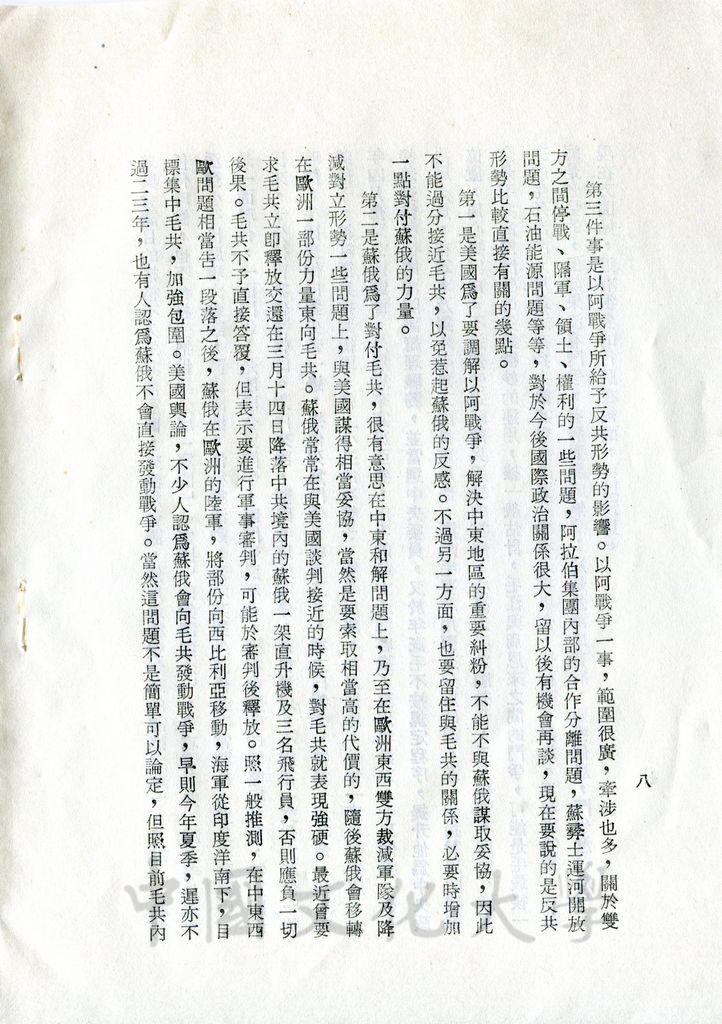 第三件事是以阿戰爭所給予反共形勢的影響。以阿戰爭一事，範圍很廣，牽涉也多，關於雙
方之間停戰、隔軍、領土、權利的一些問題，阿拉伯集團內部的合作分離問題，蘇彝士運河開放
問題，石油能源問題等等，對於今後國際政治關係很大，留以後有機會再談，現在要說的是反共
形勢比較直接有關的幾點。
第一是美國爲了要調解以阿戰爭，解決中東地區的重要糾紛，不能不與蘇俄謀取妥協，因此
不能過分接近毛共，以免惹起蘇俄的反感。不過另一方面，也要留住與毛共的關係，必要時增加
一點對付蘇俄的力量。
第二是蘇俄爲了對付毛共，很有意思在中東和解問題上，乃至在歐洲東西雙方裁減軍隊及降
減對立形勢一些問題上，與美國謀得相當妥協，當然是要索取相當高的代價的，隨後蘇俄會移轉
在歐洲一部份力量東向毛共。蘇俄常常在與美國談判接近的時候，對毛共就表現強硬。最近曾要
求毛共立即釋放交還在三月十四日降落中共境內的蘇俄一架直升機及三名飛行員，否則應負一切
後果。毛共不予直接答覆，但表示要進行軍事審判，可能於審判後釋放。照一般推測，在中東西
歐問題相當告一段落之後，蘇俄在歐洲的陸軍，將部份向西比利亞移動，海軍從印度洋南下，目
標集中毛共，加強包圍。美國輿論，不少人認爲蘇俄會向毛共發動戰爭，早則今年夏季，遲亦不
過二三年，也有人認爲蘇俄不會直接發動戰爭。當然這問題不是簡單可以論定，但照目前毛共內
八
中國文化大學